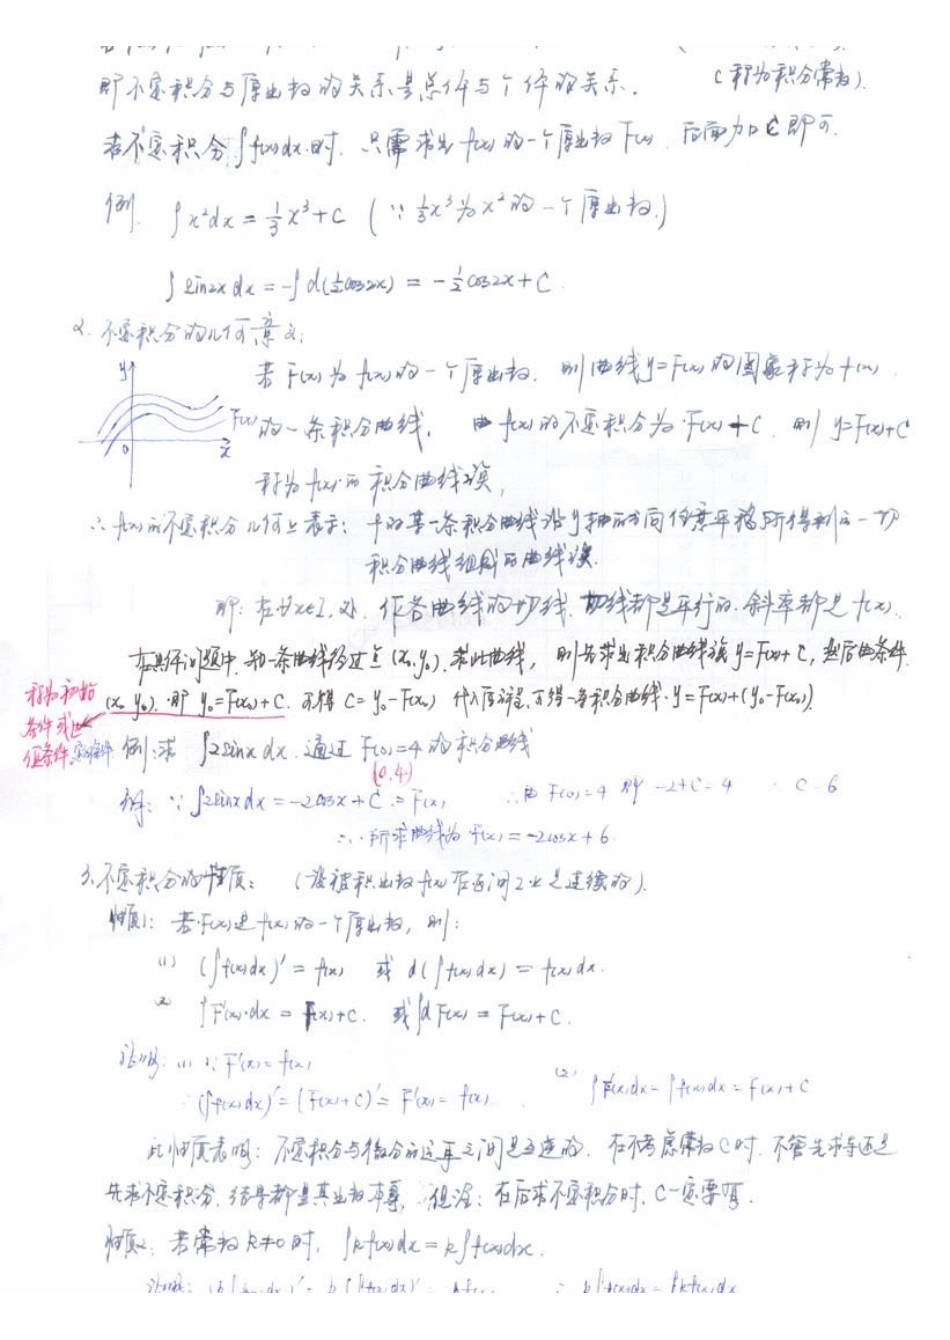 即不定积分与原函数的关系是总体与个体的关系. C称为积分常数).
若不定积分∫f(x)dx时, 只需求出f(x)的一个原函数F(x), 后面加C即可.
例. ∫x²dx = ⅓x³+C (∵ ⅓x³为x²的一个原函数.)
∫sin2x dx = -∫d(½cos2x) = -½cos2x+C.
2. 不定积分的几何意义:
若F(x)为f(x)的一个原函数, 则曲线y=F(x)的图象称为f(x)
y F(x) 0 x
的一条积分曲线, 由f(x)的不定积分为F(x)+C, 则y=F(x)+C
称为f(x)的积分曲线簇,
∴ f(x)的不定积分几何上表示: f的某一条积分曲线沿y轴的方向任意平移所得到的一切
积分曲线组成的曲线簇.
即: 在∀x∈I处, 作各曲线的切线, 切线都是平行的, 斜率都是f(x).
在具体问题中, 知一条曲线经过点(x₀,y₀), 求此曲线, 则先求出积分曲线簇y=F(x)+C, 然后由条件
称为初始
(x₀,y₀), 即 y₀=F(x₀)+C. 可得 C=y₀-F(x₀) 代入原方程, 可得一条积分曲线: y=F(x)+(y₀-F(x₀)).
条件或
值条件.
例: 求∫2sinx dx 通过F(0)=4的积分曲线
(0,4)
解: ∵ ∫2sinxdx = -2cosx+C = F(x) ∴由F(0)=4 即 -2+C=4 ∴ C=6
∴ 所求曲线为F(x)=-2cosx+6
3. 不定积分的性质: (设被积函数f(x)在区间I上是连续的).
性质1: 若F(x)是f(x)的一个原函数, 则:
(1) (∫f(x)dx)′ = f(x) 或 d(∫f(x)dx) = f(x)dx.
(2) ∫F′(x)·dx = F(x)+C. 或∫dF(x) = F(x)+C.
证明: (1) ∵ F′(x)=f(x)
(2) ∫F′(x)dx=∫f(x)dx=F(x)+C
∴ (∫f(x)dx)′=(F(x)+C)′=F′(x)=f(x).
此性质表明: 不定积分与微分的运算之间是互逆的. 在不考虑常数C时, 不管先求导还是
先求不定积分, 结果都是其函数本身. 但注: 在后求不定积分时, C一定要写.
性质2: 若常数k≠0时, ∫kf(x)dx = k∫f(x)dx.